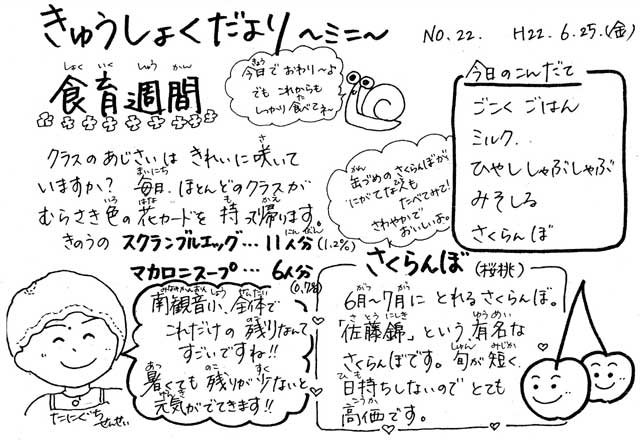 きゅうしょくだより ～ミニ～
NO.22. H22.6.25.(金)
しょく いく しゅう かん
食育週間
きょう
今日でおわり～よ
でも これからも
しっかり食べてネ～
今日のこんだて
ごこく ごはん
ミルク
ひやししゃぶしゃぶ
みそしる
さくらんぼ
クラスのあじさいは きれいに咲いて
いますか? 毎日、ほとんどのクラスが
むらさき色の花カードを 持って帰ります。
きのうの スクランブルエッグ… 11人分(1.2%)
マカロニスープ… 6人分
缶づめのさくらんぼが
にがてな人も
たべてみて!
さわやかで
おいしいよ。
南観音小、全体で
これだけの残りなんて
すごいですね!!
暑くても残りが少ないと
元気がでてきます!!
たにぐち
せんせい
さくらんぼ(桜桃)
6月～7月に とれるさくらんぼ。
「佐藤錦」という有名な
さくらんぼです。旬が短く、
日持ちしないのでとても
高価です。